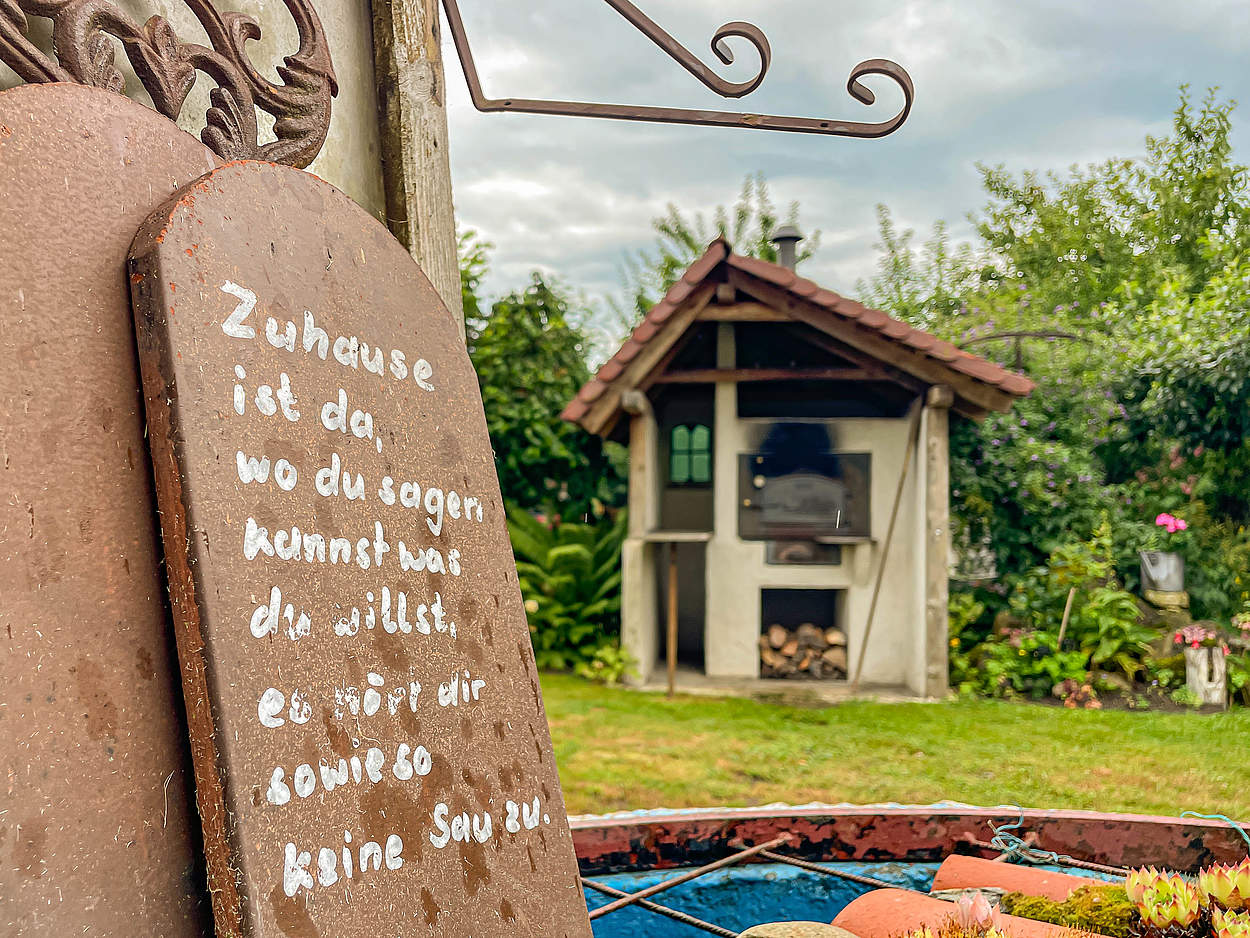 Zuhause
ist da,
wo du sagen
kannst was
du willst,
es hört dir
sowieso
keine Sau zu.